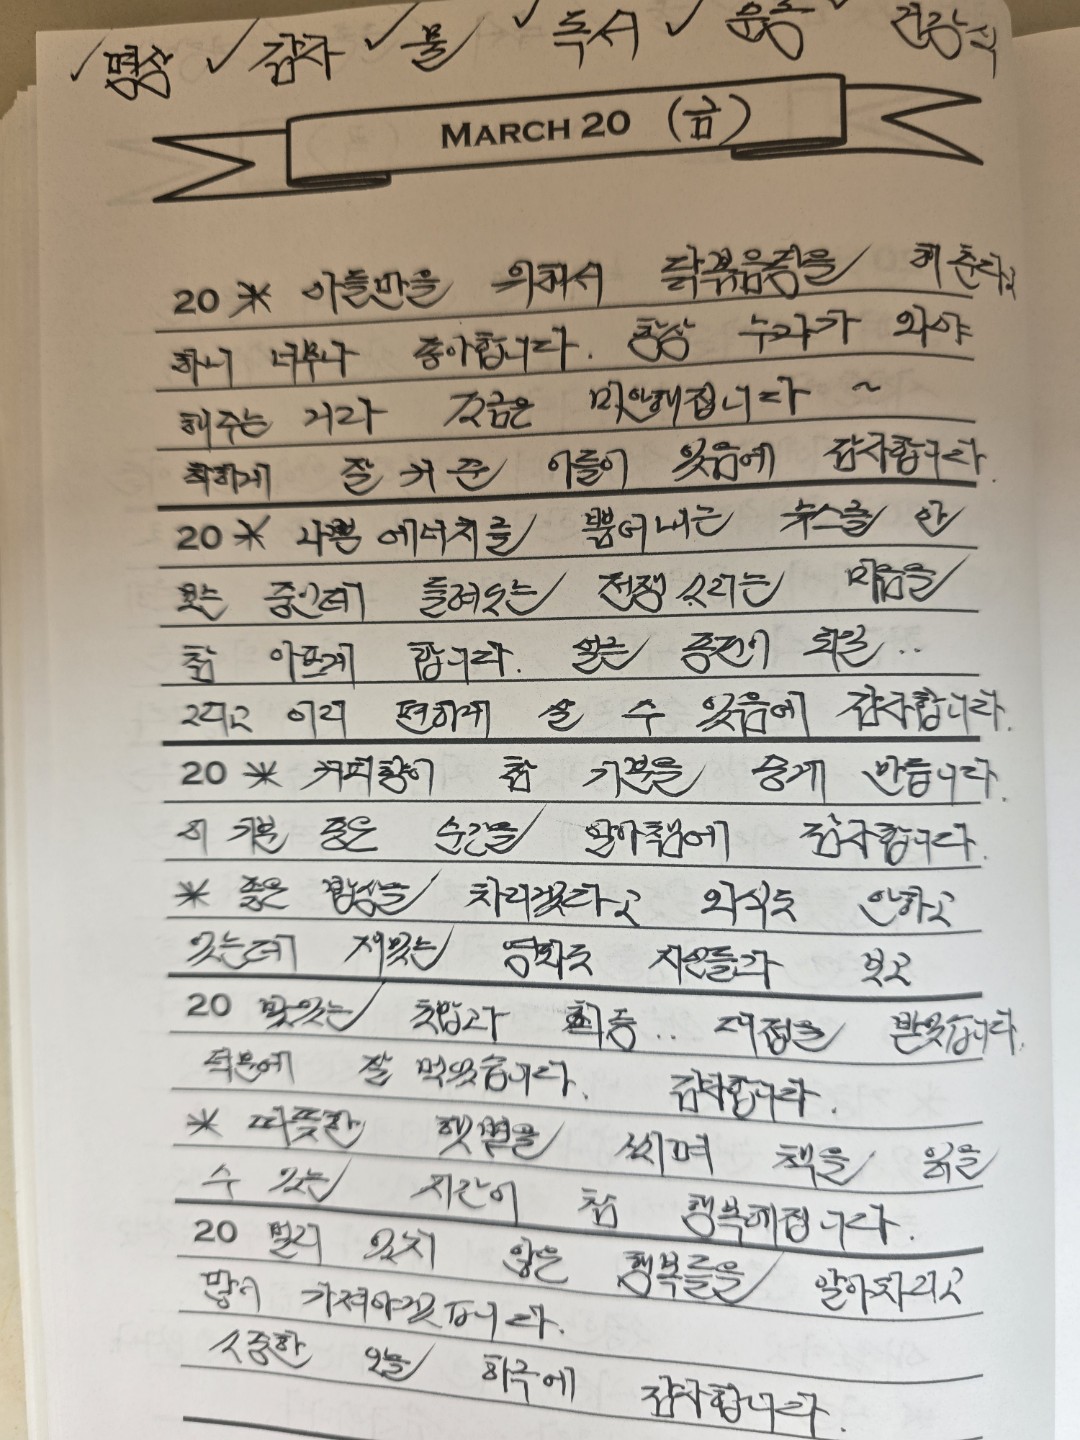 ✓명상 ✓감사 ✓물 ✓독서 ✓운동 ✓건강식
MARCH 20 (금)
20 * 아들만을 위해서 닭볶음탕을 해준다고
하니 너무나 좋아합니다. 항상 누가가 와야
해주는 거라 조금은 미안해집니다 ~
착하게 잘 커 준 아들이 있음에 감사합니다.
20 * 나쁜 에너지를 뿜어내는 뉴스를 안
보는 중인데 들려오는 전쟁 소리는 마음을
참 아프게 합니다. 얼른 종전이 되길..
그리고 이리 편하게 살 수 있음에 감사합니다.
20 * 커피향이 참 기분을 좋게 만듭니다.
이 기분 좋은 순간을 알아챔에 감사합니다.
* 좋은 밥상을 차리겠다고 외식도 안하고
있는데 재밌는 영화도 지인들과 보고
20 맛있는 초밥과 회 등.. 대접을 받았습니다.
덕분에 잘 먹었습니다. 감사합니다.
* 따뜻한 햇볕을 쐬며 책을 읽을
수 있는 시간이 참 행복해집니다.
20 멀리 있지 않은 행복들을 알아차리고
많이 가져야겠습니다.
소중한 오늘 하루에 감사합니다.